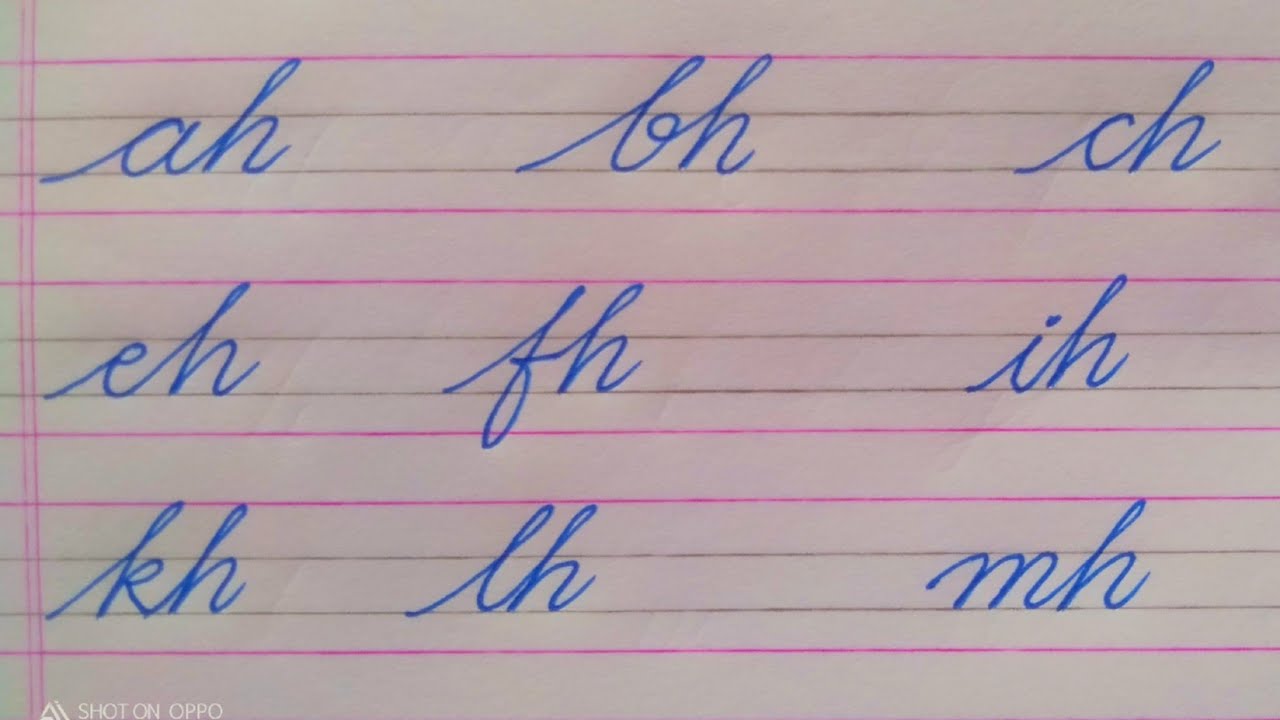 ah bh ch
eh fh ih
kh lh mh
SHOT ON OPPO